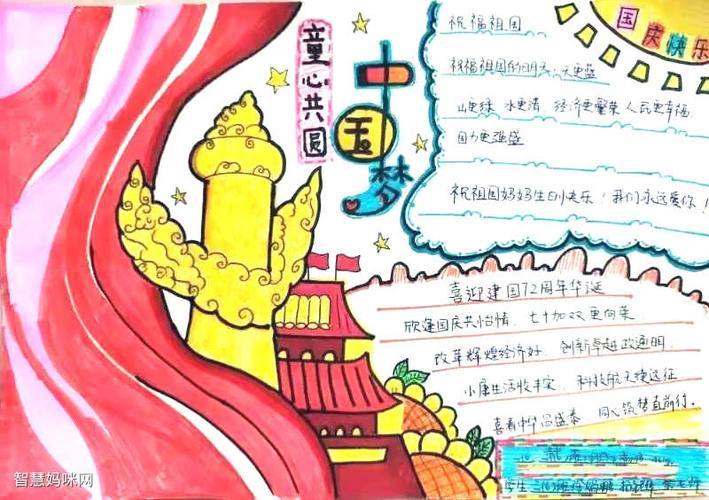 童心共圆
中国梦
国庆快乐
祝福祖国
祝福祖国的明天：天更蓝
山更绿 水更清 经济更繁荣 人民更幸福
国力更强盛
祝祖国妈妈生日快乐！我们永远爱你！
喜迎建国72周年华诞
欣逢国庆共怡情，七十加双更向荣
改革辉煌经济好，创新卓越政通明
小康生活收丰实，科技航天接远征
喜看中华昌盛泰 同心筑梦直前行.
智慧妈咪网